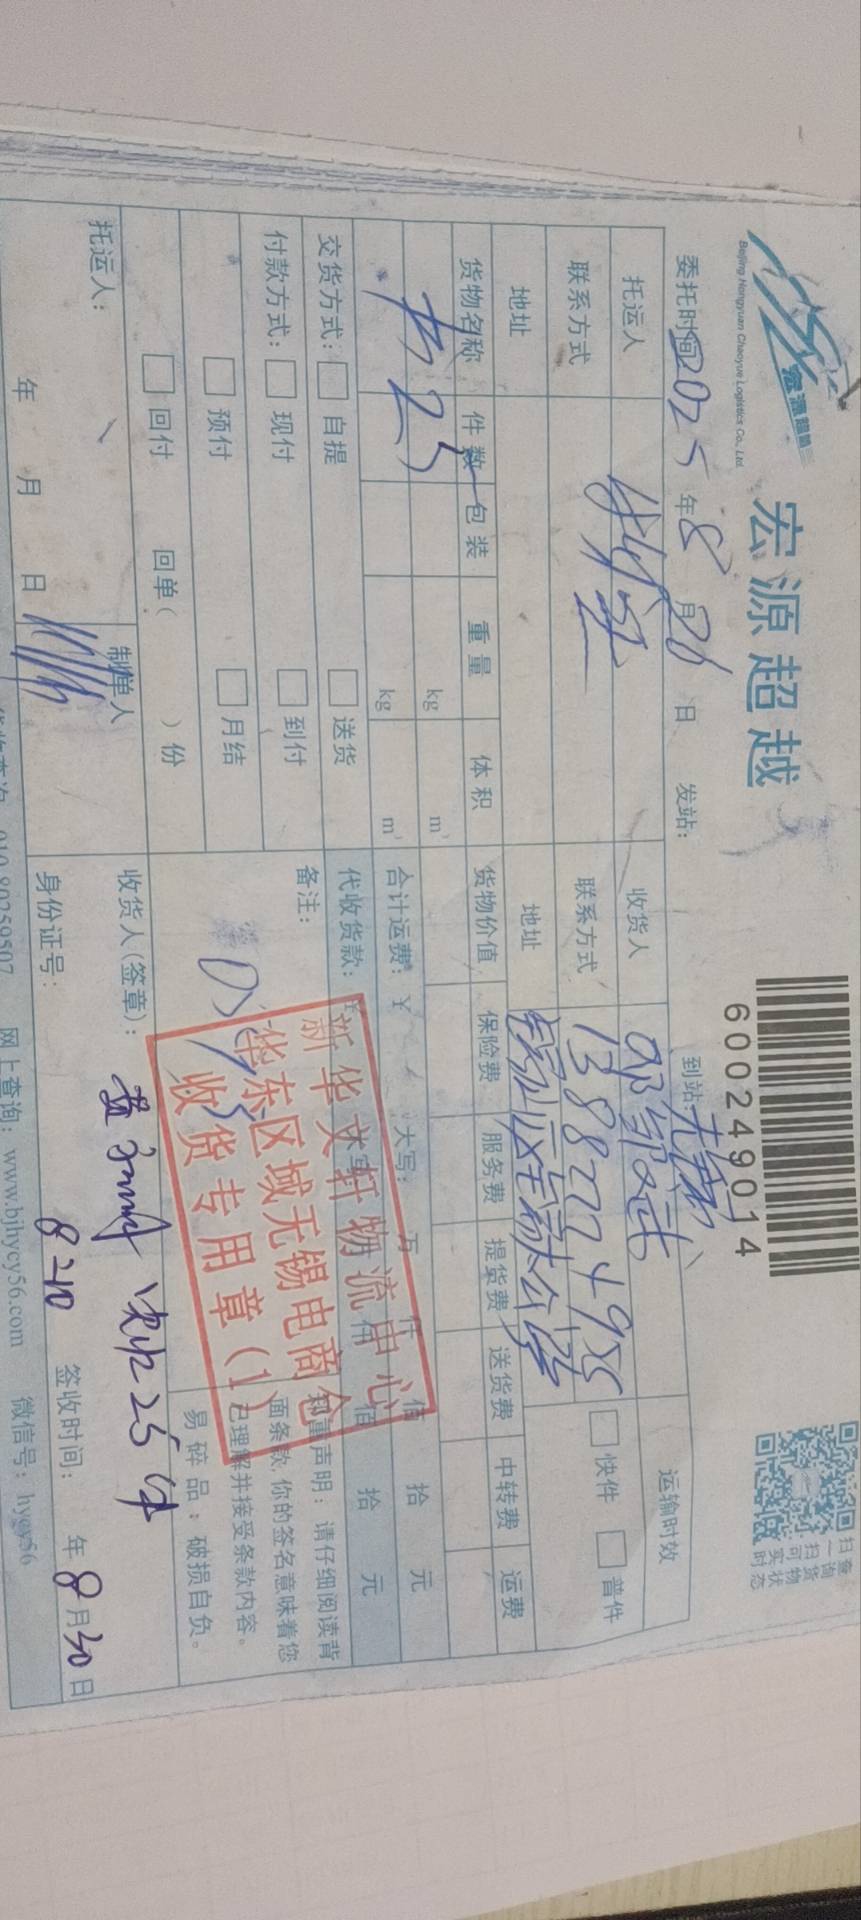 宏源超越
宏源超越
Beijing Hongyuan Chaoyue Logistics Co., Ltd.
600249014
扫一扫可实时
查询货物状态
委托时间 2025 年 8 月 26 日 发站: 到站
托运人 收货人 运输时效
联系方式 联系方式 快件 普件
地址 地址
货物名称 件数 包装 重量 体积 货物价值 保险费 服务费 提货费 送货费 中转费 运费
书 25 kg m³
kg m³ 合计运费: ¥ 大写: 万 仟 佰 拾 元
交货方式: 自提 送货 代收货款: ¥ 仟 佰 拾 元
付款方式: 现付 到付 备注:
预付 月结
回付 回单( )份
新华文轩物流中心
华东区域无锡电商仓
收货专用章(1)
郑重声明:请仔细阅读背
面条款,你的签名意味着您
已理解并接受条款内容。
易碎品:破损自负。
托运人: 制单人 收货人(签章): 25件
年 月 日 身份证号: 8-30 签收时间: 年 8 月 30 日
货物查询: 010-80259507 网上查询: www.bjhycy56.com 微信号: hycy56